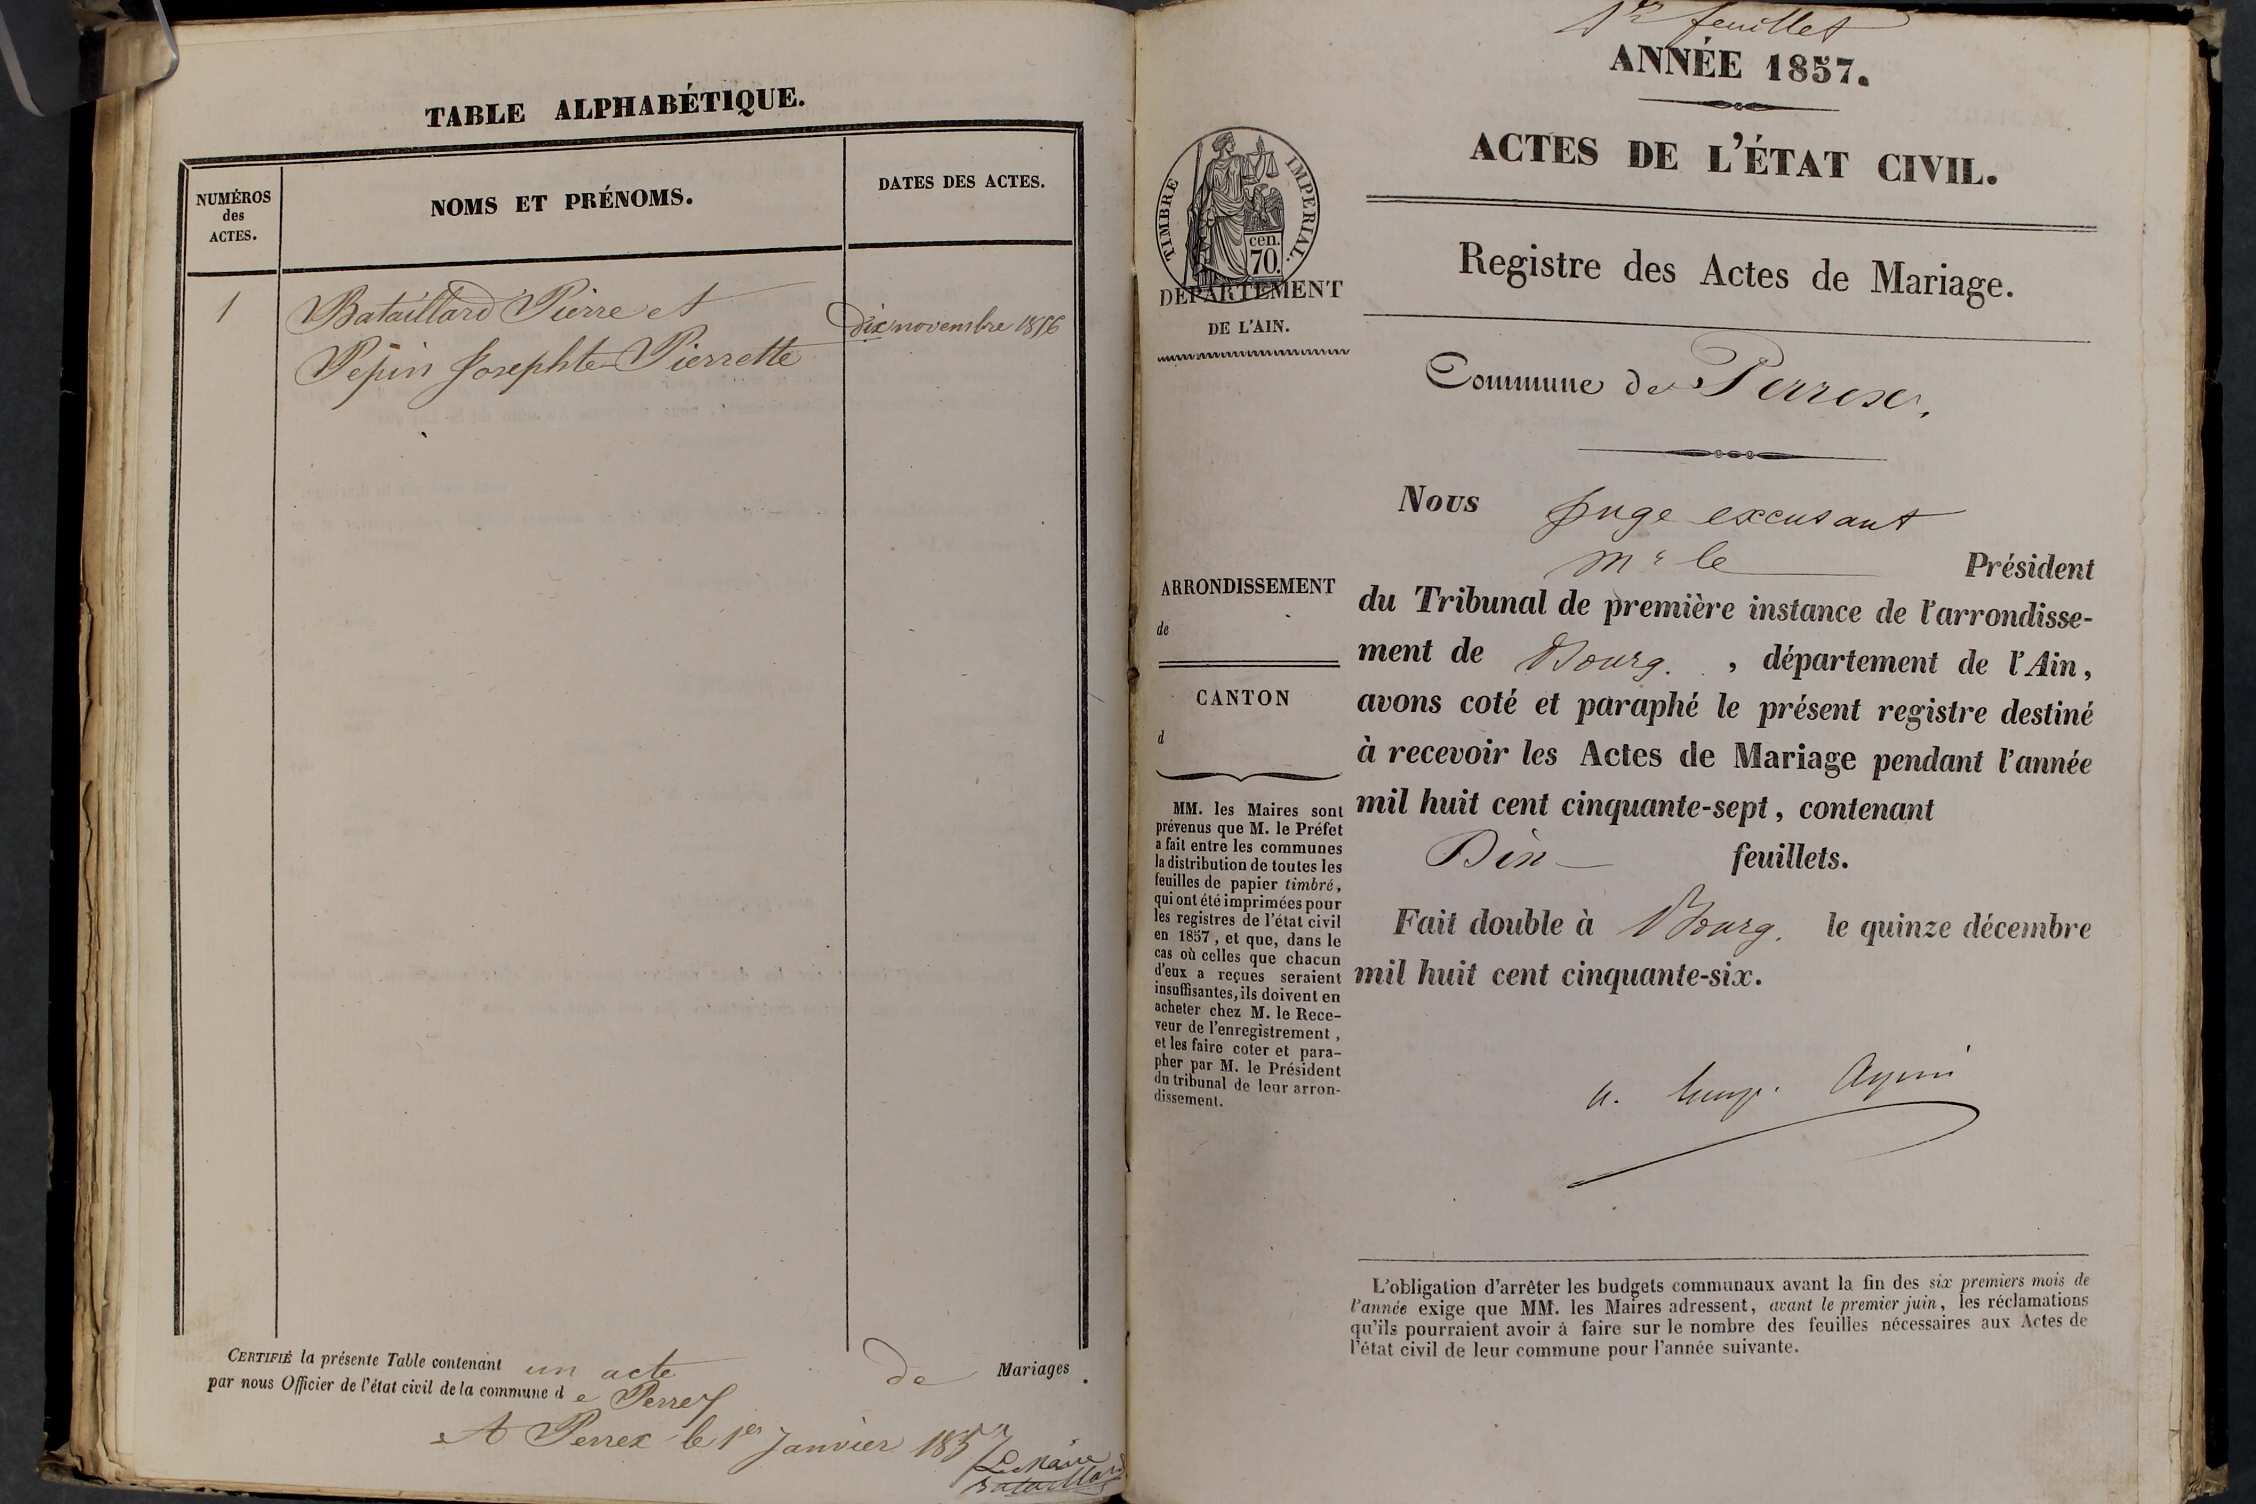 TABLE ALPHABÉTIQUE.
NUMÉROS
des
ACTES.
NOMS ET PRÉNOMS.
DATES DES ACTES.
1
Bataillard Pierre et
Pepin Josephte Pierrette
dix novembre 1856
CERTIFIÉ la présente Table contenant un acte de Mariages.
par nous Officier de l'état civil de la commune d e Perrex
A Perrex le 1er Janvier 1857
Le Maire
Bataillard
1er feuillet
ANNÉE 1857.
ACTES DE L'ÉTAT CIVIL.
TIMBRE IMPERIAL.
cen.
70.
DÉPARTEMENT
DE L'AIN.
Registre des Actes de Mariage.
Commune de Perrex.
ARRONDISSEMENT
de
CANTON
d
MM. les Maires sont
prévenus que M. le Préfet
a fait entre les communes
la distribution de toutes les
feuilles de papier timbré,
qui ont été imprimées pour
les registres de l'état civil
en 1857, et que, dans le
cas où celles que chacun
d'eux a reçues seraient
insuffisantes, ils doivent en
acheter chez M. le Rece-
veur de l'enregistrement,
et les faire coter et para-
pher par M. le Président
du tribunal de leur arron-
dissement.
Nous Juge excusant
Mr le Président
du Tribunal de première instance de l'arrondisse-
ment de Bourg. , département de l'Ain,
avons coté et paraphé le présent registre destiné
à recevoir les Actes de Mariage pendant l'année
mil huit cent cinquante-sept, contenant
Dix feuillets.
Fait double à Bourg. le quinze décembre
mil huit cent cinquante-six.
L'obligation d'arrêter les budgets communaux avant la fin des six premiers mois de
l'année exige que MM. les Maires adressent, avant le premier juin, les réclamations
qu'ils pourraient avoir à faire sur le nombre des feuilles nécessaires aux Actes de
l'état civil de leur commune pour l'année suivante.